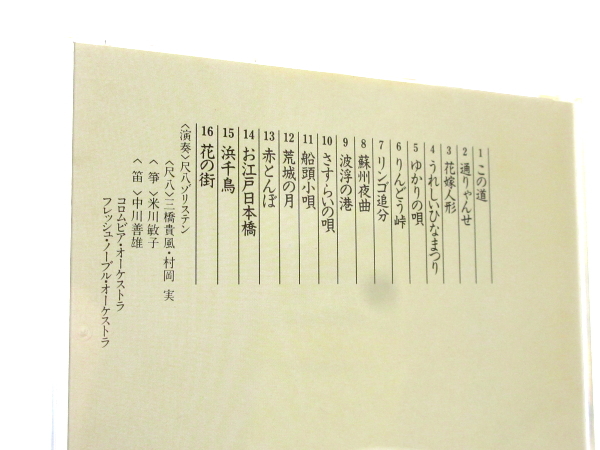 1 この道
2 通りゃんせ
3 花嫁人形
4 うれしいひなまつり
5 ゆかりの唄
6 りんどう峠
7 リンゴ追分
8 蘇州夜曲
9 波浮の港
10 さすらいの唄
11 船頭小唄
12 荒城の月
13 赤とんぼ
14 お江戸日本橋
15 浜千鳥
16 花の街
〈演奏〉尺八プリステン
〈尺八〉三橋貴風・村岡 実
〈箏〉米川敏子
〈笛〉中川善雄
コロムビア・オーケストラ
フレッシュ・ノーブル・オーケストラ